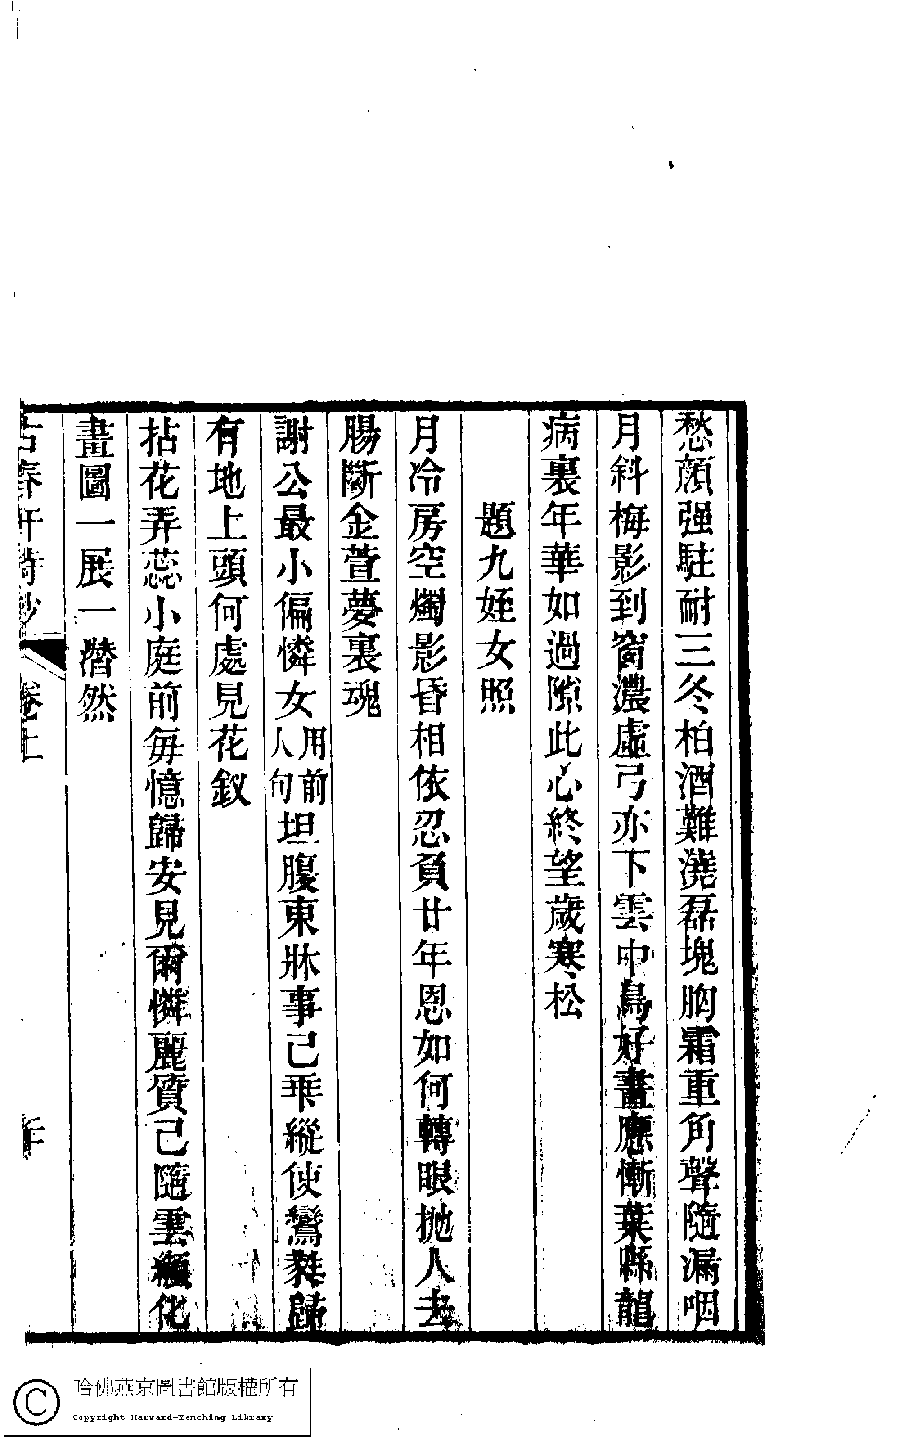 愁顔强駐耐三冬柏酒難澆磊塊胸霜重角聲隨漏咽
月斜梅影到窗濃虛弓亦下雲中鳥好畫應慚葉縣龍
病裏年華如過隙此心終望歲寒松
題九姪女照
月冷房空燭影昏相依忍負廿年恩如何轉眼抛人去
腸斷金萱夢裏魂
謝公最小偏憐女用前人句坦腹東牀事已乖縱使鸞
有地上頭何處見花釵
拈花弄蕊小庭前每憶歸安見爾憐麗質已隨雲化
畫圖一展一潸然
古春軒詩鈔 卷上
哈佛燕京圖書館版權所有
Copyright Harvard-Yenching Library